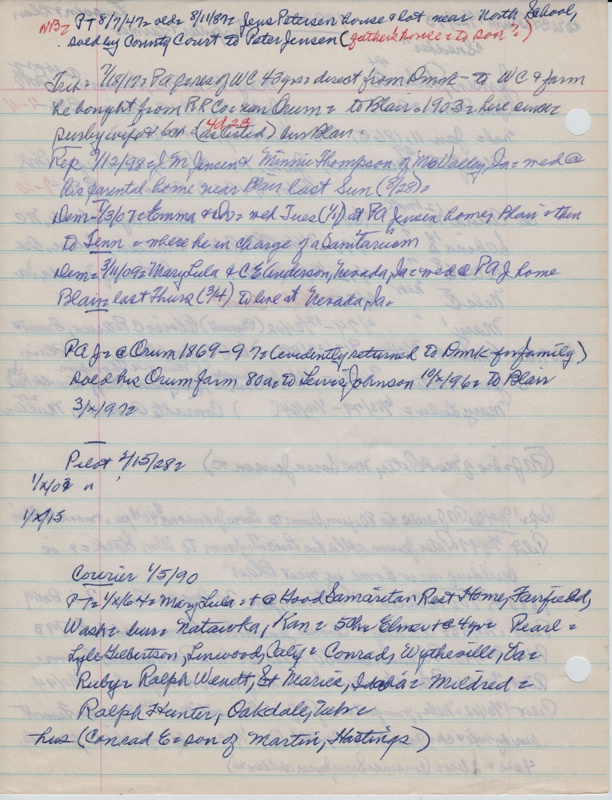 NB= PT 8/7/47= old= 8/11/87= Jens Petersen house & lot near North School,
sold by County Court to Peter Jensen (fathers house = to son?)
Trib= 7/8/17= PA Jones of WC 43 yrs = direct from Dmk - to WC & farm
he bought from RR Co = near Orum = to Blair = 1903 = here since
surv by wife & 6 ch (as listed) bur Blair = 4d, 2s
Rep 3/12/98 = J. M. Jensen & Minnie Thompson of Mo Valley, Ia = wed @
his parental home near Blair last Sun (2/28) =
Dem - 1/3/07 = Emma & = wed Tues (1/1) at PA Jensen home, Blair = then
to Tenn = where he in charge of a Sanitarium
Dem = 3/11/09 = Mary Lula & C E Anderson, Nevada, Ia = wed @ PA J home
Blair = last Thurs (3/4) to live at Nevada, Ia.
PA J = @ Orum 1869-97= (evidently returned to Dmk for family)
sold his Orum farm 80a = to Lewis Johnson 10/x/96 = to Blair
3/x/97=
Pilot 2/15/28=
1/x/03 "
1/x/15
Courier 1/5/90
PT= 4/x/64= Mary Lula = + @ Good Samaritan Rest Home, Fairfield,
Wash = bur = Natawka, Kan = 5 ch = Elmer + @ 4 yr = Pearl =
Lyle Gilbertson, Linwood, Caly = Conrad, Wytheville, Va =
Ruby = Ralph Wendt, St Maries, Idaho = Mildred =
Ralph Hunter, Oakdale, Neb =
hus (Conrad E = son of Martin, Hastings)